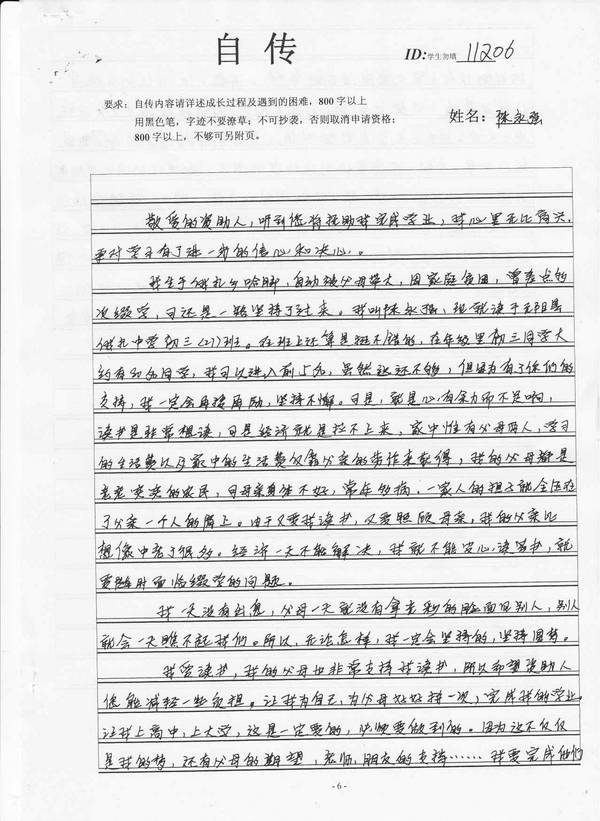 自 传
ID:学生勿填 11206
要求：自传内容请详述成长过程及遇到的困难，800字以上
用黑色笔，字迹不要潦草；不可抄袭，否则取消申请资格；
800字以上，不够可另附页。
姓名：陈永强
敬爱的资助人，听到您将援助我完成学业，我心里无比高兴，
更对学习有了进一步的信心和决心。
我生于俄扎乡哈脚，自幼被父母带大，因家庭贫困，曾差点的
次缀学，可还是一路坚持了过来。我叫陈永强，现就读于元阳县
俄扎中学初三(27)班。在班上还算是挺不错的，在年级里初三同学大
约有 名同学，我可以进入前5名，虽然这还不够，但因为有了你们的
支持，我一定会再接再励，坚持不懈。可是，就是心有余力而不足啊，
读书是非常想读，可是经济就是拉不上来，家中惟有父母两人，学习
的生活费以及家中的生活费仅靠父亲的劳作来获得，我的父母都是
老老实实的农民，可母亲身体不好，常年多病，一家人的担子就全压在
了父亲一个人的肩上。由于又要我读书，又要照顾母亲，我的父亲比
想像中老了很多。经济一天不能解决，我就不能安心读书，就
要随时面临缀学的问题。
我一天没有出息，父母一天就没有拿去 的脸面见别人，别人
就会一天瞧不起我们。所以，无论怎样，我一定会坚持的，坚持困难。
我爱读书，我的父母也非常支持我读书，所以希望资助人
您能减轻一些负担。让我为自己，为父母好好拼一次，完成我的学业。
让我上高中，上大学，这是一定要的，必须要做到的。因为这不仅仅
是我的梦，还有父母的期望，老师，朋友的支持……我要完成他们
- 6 -